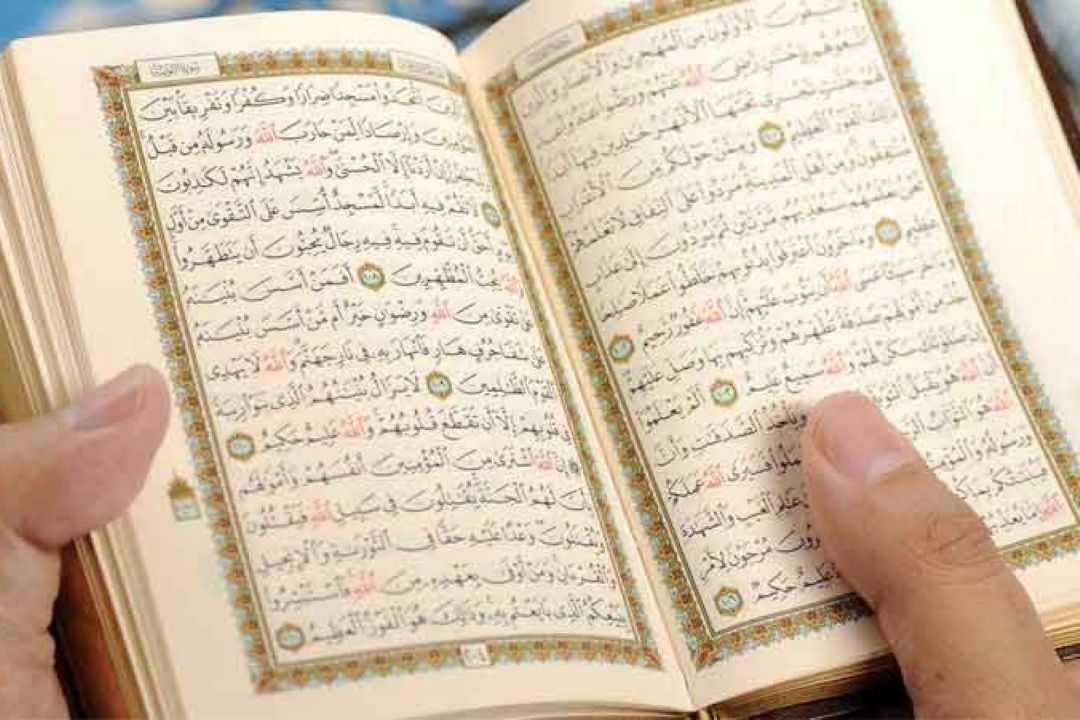 وَٱلسَّٰبِقُونَ ٱلْأَوَّلُونَ مِنَ ٱلْمُهَٰجِرِينَ وَٱلْأَنصَارِ وَٱلَّذِينَ
ٱتَّبَعُوهُم بِإِحْسَٰنٍ رَّضِىَ ٱللَّهُ عَنْهُمْ وَرَضُوا۟ عَنْهُ وَأَعَدَّ لَهُمْ
جَنَّٰتٍ تَجْرِى تَحْتَهَا ٱلْأَنْهَٰرُ خَٰلِدِينَ فِيهَآ أَبَدًا
ذَٰلِكَ ٱلْفَوْزُ ٱلْعَظِيمُ ١٠٠ وَمِمَّنْ حَوْلَكُم مِّنَ ٱلْأَعْرَابِ
مُنَٰفِقُونَ وَمِنْ أَهْلِ ٱلْمَدِينَةِ مَرَدُوا۟ عَلَى ٱلنِّفَاقِ لَا تَعْلَمُهُمْ
نَحْنُ نَعْلَمُهُمْ سَنُعَذِّبُهُم مَّرَّتَيْنِ ثُمَّ يُرَدُّونَ إِلَىٰ عَذَابٍ
عَظِيمٍ ١٠١ وَءَاخَرُونَ ٱعْتَرَفُوا۟ بِذُنُوبِهِمْ خَلَطُوا۟ عَمَلًا صَٰلِحًا
وَءَاخَرَ سَيِّئًا عَسَى ٱللَّهُ أَن يَتُوبَ عَلَيْهِمْ إِنَّ ٱللَّهَ غَفُورٌ رَّحِيمٌ ١٠٢
خُذْ مِنْ أَمْوَٰلِهِمْ صَدَقَةً تُطَهِّرُهُمْ وَتُزَكِّيهِم بِهَا وَصَلِّ عَلَيْهِمْ
إِنَّ صَلَوٰتَكَ سَكَنٌ لَّهُمْ وَٱللَّهُ سَمِيعٌ عَلِيمٌ ١٠٣ أَلَمْ يَعْلَمُوٓا۟
أَنَّ ٱللَّهَ هُوَ يَقْبَلُ ٱلتَّوْبَةَ وَيَأْخُذُ ٱلصَّدَقَٰتِ وَأَنَّ
ٱللَّهَ هُوَ ٱلتَّوَّابُ فَسَيَرَى ٱللَّهُ عَمَلَكُمْ
وَرَسُولُهُۥ وَٱلْمُؤْمِنُونَ عَٰلِمِ ٱلْغَيْبِ وَٱلشَّهَٰدَةِ
فَيُنَبِّئُكُم بِمَا مُرْجَوْنَ لِأَمْرِ
ٱللَّهِ إِمَّا يُعَذِّبُهُمْ عَلِيمٌ حَكِيمٌ ١٠٦
سورة التوبة
وَٱلَّذِينَ ٱتَّخَذُوا۟ مَسْجِدًا ضِرَارًا وَكُفْرًا وَتَفْرِيقًۢا بَيْنَ
ٱلْمُؤْمِنِينَ وَإِرْصَادًا لِّمَنْ حَارَبَ ٱللَّهَ وَرَسُولَهُۥ مِن قَبْلُ
وَلَيَحْلِفُنَّ إِنْ أَرَدْنَآ إِلَّا ٱلْحُسْنَىٰ وَٱللَّهُ يَشْهَدُ إِنَّهُمْ لَكَٰذِبُونَ
١٠٧ لَا تَقُمْ فِيهِ أَبَدًا لَّمَسْجِدٌ أُسِّسَ عَلَى ٱلتَّقْوَىٰ مِنْ أَوَّلِ
يَوْمٍ أَحَقُّ أَن تَقُومَ فِيهِ فِيهِ رِجَالٌ يُحِبُّونَ أَن يَتَطَهَّرُوا۟
وَٱللَّهُ يُحِبُّ ٱلْمُطَّهِّرِينَ ١٠٨ أَفَمَنْ أَسَّسَ بُنْيَٰنَهُۥ
عَلَىٰ تَقْوَىٰ مِنَ ٱللَّهِ وَرِضْوَٰنٍ خَيْرٌ أَم مَّنْ أَسَّسَ بُنْيَٰنَهُۥ
عَلَىٰ شَفَا جُرُفٍ هَارٍ فَٱنْهَارَ بِهِۦ فِى نَارِ جَهَنَّمَ وَٱللَّهُ لَا يَهْدِى
ٱلْقَوْمَ ٱلظَّٰلِمِينَ ١٠٩ لَا يَزَالُ بُنْيَٰنُهُمُ ٱلَّذِى بَنَوْا۟ رِيبَةً
فِى قُلُوبِهِمْ إِلَّآ أَن تَقَطَّعَ قُلُوبُهُمْ وَٱللَّهُ عَلِيمٌ حَكِيمٌ ١١٠
إِنَّ ٱللَّهَ ٱشْتَرَىٰ مِنَ ٱلْمُؤْمِنِينَ أَنفُسَهُمْ وَأَمْوَٰلَهُم
بِأَنَّ لَهُمُ ٱلْجَنَّةَ يُقَٰتِلُونَ فِى سَبِيلِ ٱللَّهِ فَيَقْتُلُونَ
وَيُقْتَلُونَ وَعْدًا عَلَيْهِ حَقًّا فِى ٱلتَّوْرَىٰةِ وَٱلْإِنجِيلِ
وَٱلْقُرْءَانِ وَمَنْ أَوْفَىٰ بِعَهْدِهِۦ مِنَ ٱللَّهِ فَٱسْتَبْشِرُوا۟
بِبَيْعِكُمُ ٱلَّذِى بَايَعْتُم بِهِۦ وَذَٰلِكَ هُوَ ٱلْفَوْزُ ٱلْعَظِيمُ ١١١
٢٠٤